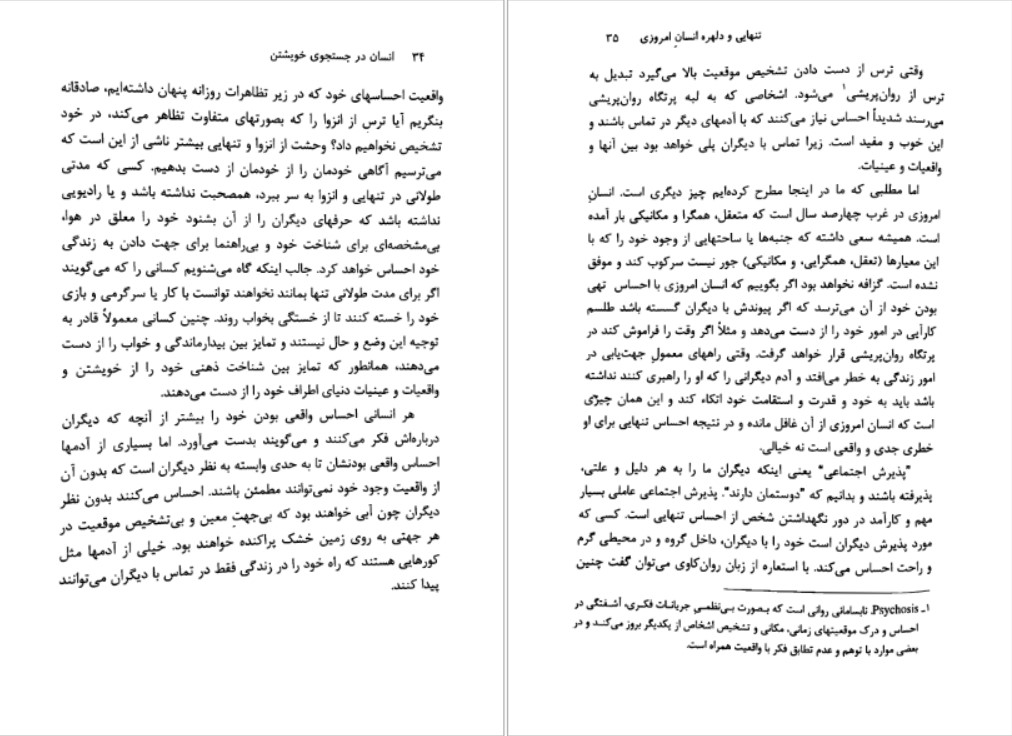 ۳۴ انسان در جستجوی خویشتن
واقعیت احساسهای خود که در زیر تظاهرات روزانه پنهان داشته‌ایم، صادقانه
بنگریم آیا ترس از انزوا را که بصورتهای متفاوت تظاهر می‌کند، در خود
تشخیص نخواهیم داد؟ وحشت از انزوا و تنهایی بیشتر ناشی از این است که
می‌ترسیم آگاهی خودمان را از خودمان از دست بدهیم. کسی که مدتی
طولانی در تنهایی و انزوا به سر ببرد، همصحبت نداشته باشد و یا رادیویی
نداشته باشد که حرفهای دیگران را از آن بشنود خود را معلق در هوا،
بی‌مشخصه‌ای برای شناخت خود و بی‌راهنما برای جهت دادن به زندگی
خود احساس خواهد کرد. جالب اینکه گاه می‌شنویم کسانی را که می‌گویند
اگر برای مدت طولانی تنها بمانند نخواهند توانست با کار یا سرگرمی و بازی
خود را خسته کنند تا از خستگی بخواب روند. چنین کسانی معمولاً قادر به
توجیه این وضع و حال نیستند و تمایز بین بیدارماندگی و خواب را از دست
می‌دهند، همانطور که تمایز بین شناخت ذهنی خود را از خویشتن و
واقعیات و عینیات دنیای اطراف خود را از دست می‌دهند.
هر انسانی احساس واقعی بودن خود را بیشتر از آنچه که دیگران
درباره‌اش فکر می‌کنند و می‌گویند بدست می‌آورد. اما بسیاری از آدمها
احساس واقعی بودنشان تا به حدی وابسته به نظر دیگران است که بدون آن
از واقعیت وجود خود نمی‌توانند مطمئن باشند. احساس می‌کنند بدون نظر
دیگران چون آبی خواهند بود که بی‌جهتِ معین و بی‌تشخیص موقعیت در
هر جهتی به روی زمین خشک پراکنده خواهند بود. خیلی از آدمها مثل
کورهایی هستند که راه خود را در زندگی فقط در تماس با دیگران می‌توانند
پیدا کنند.
تنهایی و دلهره انسانِ امروزی ۳۵
وقتی ترس از دست دادن تشخیص موقعیت بالا می‌گیرد تبدیل به
ترس از روان‌پریشی۱ می‌شود. اشخاصی که به لبه پرتگاه روان‌پریشی
می‌رسند شدیداً احساس نیاز می‌کنند که با آدمهای دیگر در تماس باشند و
این خوب و مفید است. زیرا تماس با دیگران پلی خواهد بود بین آنها و
واقعیات و عینیات.
اما مطلبی که ما در اینجا مطرح کرده‌ایم چیز دیگری است. انسانِ
امروزی در غرب چهارصد سال است که متعقل، همگرا و مکانیکی بار آمده
است. همیشه سعی داشته که جنبه‌ها یا ساحتهایی از وجود خود را که با
این معیارها (تعقل، همگرایی، و مکانیکی) جور نیست سرکوب کند و موفق
نشده است. گزافه نخواهد بود اگر بگوییم که انسان امروزی با احساس تهی
بودن خود از آن می‌ترسد که اگر پیوندش با دیگران گسسته باشد طلسم
کارآیی در امور خود را از دست می‌دهد و مثلاً اگر وقت را فراموش کند در
پرتگاه روان‌پریشی قرار خواهد گرفت. وقتی راههای معمولِ جهت‌یابی در
امور زندگی به خطر می‌افتد و آدم دیگرانی را که او را راهبری کنند نداشته
باشد باید به خود و قدرت و استقامت خود اتکاء کند و این همان چیزی
است که انسان امروزی از آن غافل مانده و در نتیجه احساس تنهایی برای او
خطری جدی و واقعی است نه خیالی.
"پذیرش اجتماعی" یعنی اینکه دیگران ما را به هر دلیل و علتی،
پذیرفته باشند و بدانیم که "دوستمان دارند". پذیرش اجتماعی عاملی بسیار
مهم و کارآمد در دور نگهداشتن شخص از احساس تنهایی است. کسی که
مورد پذیرش دیگران است خود را با دیگران، داخل گروه و در محیطی گرم
و راحت احساس می‌کند. با استعاره از زبان روان‌کاوی می‌توان گفت چنین
۱ـ Psychosis. نابسامانی روانی است که بصورت بی‌نظمیِ جریانات فکری، آشفتگی در
احساس و درک موقعیتهای زمانی، مکانی و تشخیص اشخاص از یکدیگر بروز می‌کند و در
بعضی موارد با توهم و عدم تطابق فکر با واقعیت همراه است.